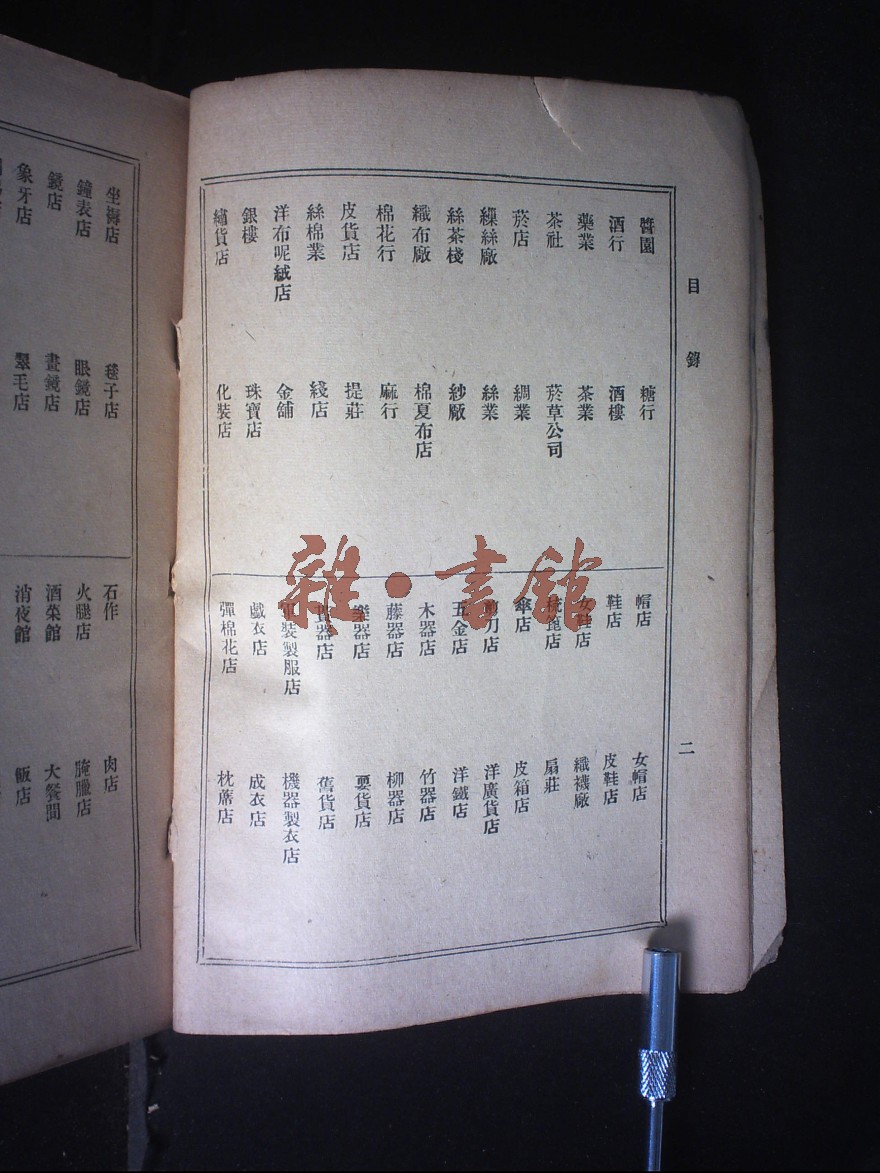 目錄
二
醬園 糖行
酒行 酒樓
藥業 茶業
茶社 菸草公司
菸店 綢業
繅絲廠 絲業
絲茶棧 紗厰
織布廠 棉夏布店
棉花行 麻行
皮貨店 提莊
絲棉業 綫店
洋布呢絨店 金舖
銀樓 珠寶店
繡貨店 化裝店
帽店 女帽店
鞋店 皮鞋店
女鞋店 織襪廠
梳篦店 扇莊
傘店 皮箱店
剪刀店 洋廣貨店
五金店 洋鐵店
木器店 竹器店
藤器店 柳器店
樂器店 耍貨店
器店 舊貨店
軍裝製服店 機器製衣店
戲衣店 成衣店
彈棉花店 枕蓆店
坐褥店 毯子店
鐘表店 眼鏡店
鏡店 畫鏡店
象牙店 翠毛店
石作 肉店
火腿店 腌臘店
酒菜館 大餐間
消夜館 飯店
雜·書館